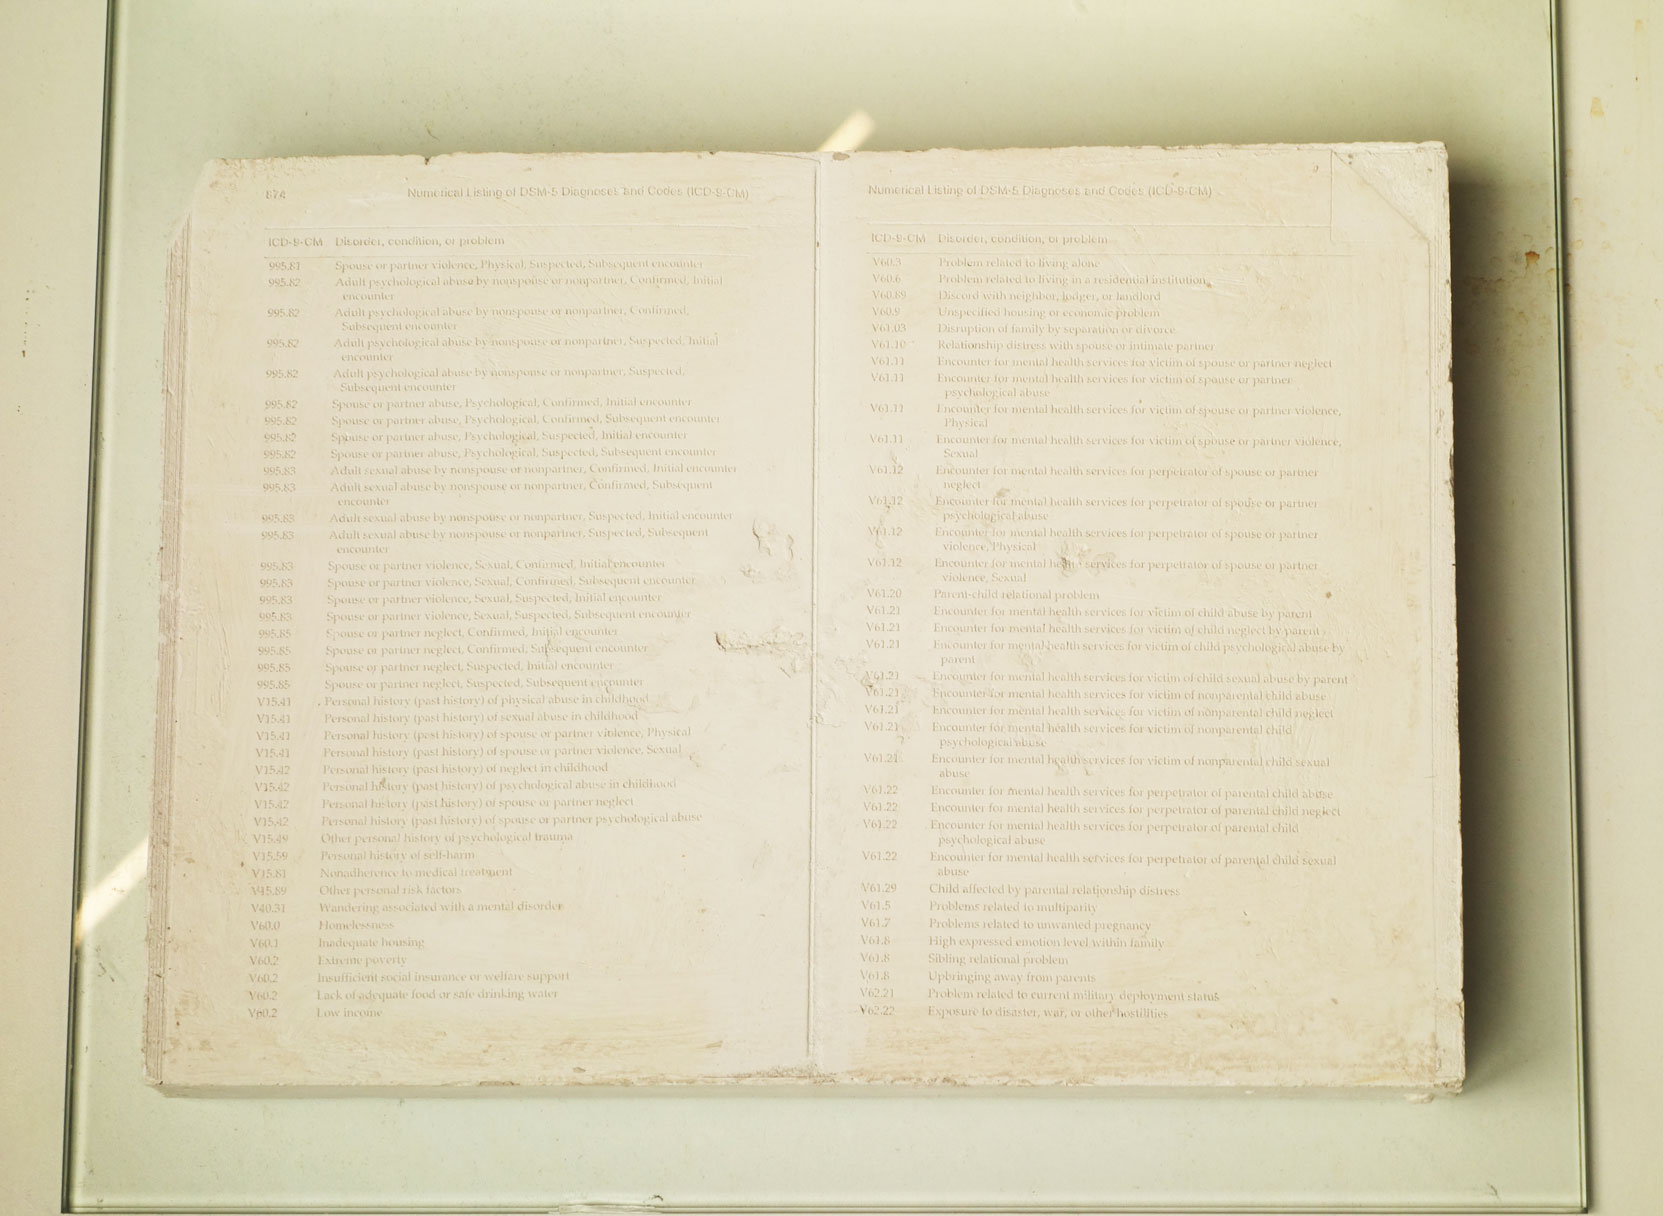 874 Numerical Listing of DSM-5 Diagnoses and Codes (ICD-9-CM)
ICD-9-CM Disorder, condition, or problem
995.81 Spouse or partner violence, Physical, Suspected, Subsequent encounter
995.82 Adult psychological abuse by nonspouse or nonpartner, Confirmed, Initial
encounter
995.82 Adult psychological abuse by nonspouse or nonpartner, Confirmed,
Subsequent encounter
995.82 Adult psychological abuse by nonspouse or nonpartner, Suspected, Initial
encounter
995.82 Adult psychological abuse by nonspouse or nonpartner, Suspected,
Subsequent encounter
995.82 Spouse or partner abuse, Psychological, Confirmed, Initial encounter
995.82 Spouse or partner abuse, Psychological, Confirmed, Subsequent encounter
995.82 Spouse or partner abuse, Psychological, Suspected, Initial encounter
995.82 Spouse or partner abuse, Psychological, Suspected, Subsequent encounter
995.83 Adult sexual abuse by nonspouse or nonpartner, Confirmed, Initial encounter
995.83 Adult sexual abuse by nonspouse or nonpartner, Confirmed, Subsequent
encounter
995.83 Adult sexual abuse by nonspouse or nonpartner, Suspected, Initial encounter
995.83 Adult sexual abuse by nonspouse or nonpartner, Suspected, Subsequent
encounter
995.83 Spouse or partner violence, Sexual, Confirmed, Initial encounter
995.83 Spouse or partner violence, Sexual, Confirmed, Subsequent encounter
995.83 Spouse or partner violence, Sexual, Suspected, Initial encounter
995.83 Spouse or partner violence, Sexual, Suspected, Subsequent encounter
995.85 Spouse or partner neglect, Confirmed, Initial encounter
995.85 Spouse or partner neglect, Confirmed, Subsequent encounter
995.85 Spouse or partner neglect, Suspected, Initial encounter
995.85 Spouse or partner neglect, Suspected, Subsequent encounter
V15.41 Personal history (past history) of physical abuse in childhood
V15.41 Personal history (past history) of sexual abuse in childhood
V15.41 Personal history (past history) of spouse or partner violence, Physical
V15.41 Personal history (past history) of spouse or partner violence, Sexual
V15.42 Personal history (past history) of neglect in childhood
V15.42 Personal history (past history) of psychological abuse in childhood
V15.42 Personal history (past history) of spouse or partner neglect
V15.42 Personal history (past history) of spouse or partner psychological abuse
V15.49 Other personal history of psychological trauma
V15.59 Personal history of self-harm
V15.81 Nonadherence to medical treatment
V15.89 Other personal risk factors
V40.31 Wandering associated with a mental disorder
V60.0 Homelessness
V60.1 Inadequate housing
V60.2 Extreme poverty
V60.2 Insufficient social insurance or welfare support
V60.2 Lack of adequate food or safe drinking water
V60.2 Low income
Numerical Listing of DSM-5 Diagnoses and Codes (ICD-9-CM)
ICD-9-CM Disorder, condition, or problem
V60.3 Problem related to living alone
V60.6 Problem related to living in a residential institution
V60.89 Discord with neighbor, lodger, or landlord
V60.9 Unspecified housing or economic problem
V61.03 Disruption of family by separation or divorce
V61.10 Relationship distress with spouse or intimate partner
V61.11 Encounter for mental health services for victim of spouse or partner neglect
V61.11 Encounter for mental health services for victim of spouse or partner
psychological abuse
V61.11 Encounter for mental health services for victim of spouse or partner violence,
Physical
V61.11 Encounter for mental health services for victim of spouse or partner violence,
Sexual
V61.12 Encounter for mental health services for perpetrator of spouse or partner
neglect
V61.12 Encounter for mental health services for perpetrator of spouse or partner
psychological abuse
V61.12 Encounter for mental health services for perpetrator of spouse or partner
violence, Physical
V61.12 Encounter for mental health services for perpetrator of spouse or partner
violence, Sexual
V61.20 Parent-child relational problem
V61.21 Encounter for mental health services for victim of child abuse by parent
V61.21 Encounter for mental health services for victim of child neglect by parent
V61.21 Encounter for mental health services for victim of child psychological abuse by
parent
V61.21 Encounter for mental health services for victim of child sexual abuse by parent
V61.21 Encounter for mental health services for victim of nonparental child abuse
V61.21 Encounter for mental health services for victim of nonparental child neglect
V61.21 Encounter for mental health services for victim of nonparental child
psychological abuse
V61.21 Encounter for mental health services for victim of nonparental child sexual
abuse
V61.22 Encounter for mental health services for perpetrator of parental child abuse
V61.22 Encounter for mental health services for perpetrator of parental child neglect
V61.22 Encounter for mental health services for perpetrator of parental child
psychological abuse
V61.22 Encounter for mental health services for perpetrator of parental child sexual
abuse
V61.29 Child affected by parental relationship distress
V61.5 Problems related to multiparity
V61.7 Problems related to unwanted pregnancy
V61.8 High expressed emotion level within family
V61.8 Sibling relational problem
V61.8 Upbringing away from parents
V62.21 Problem related to current military deployment status
V62.22 Exposure to disaster, war, or other hostilities